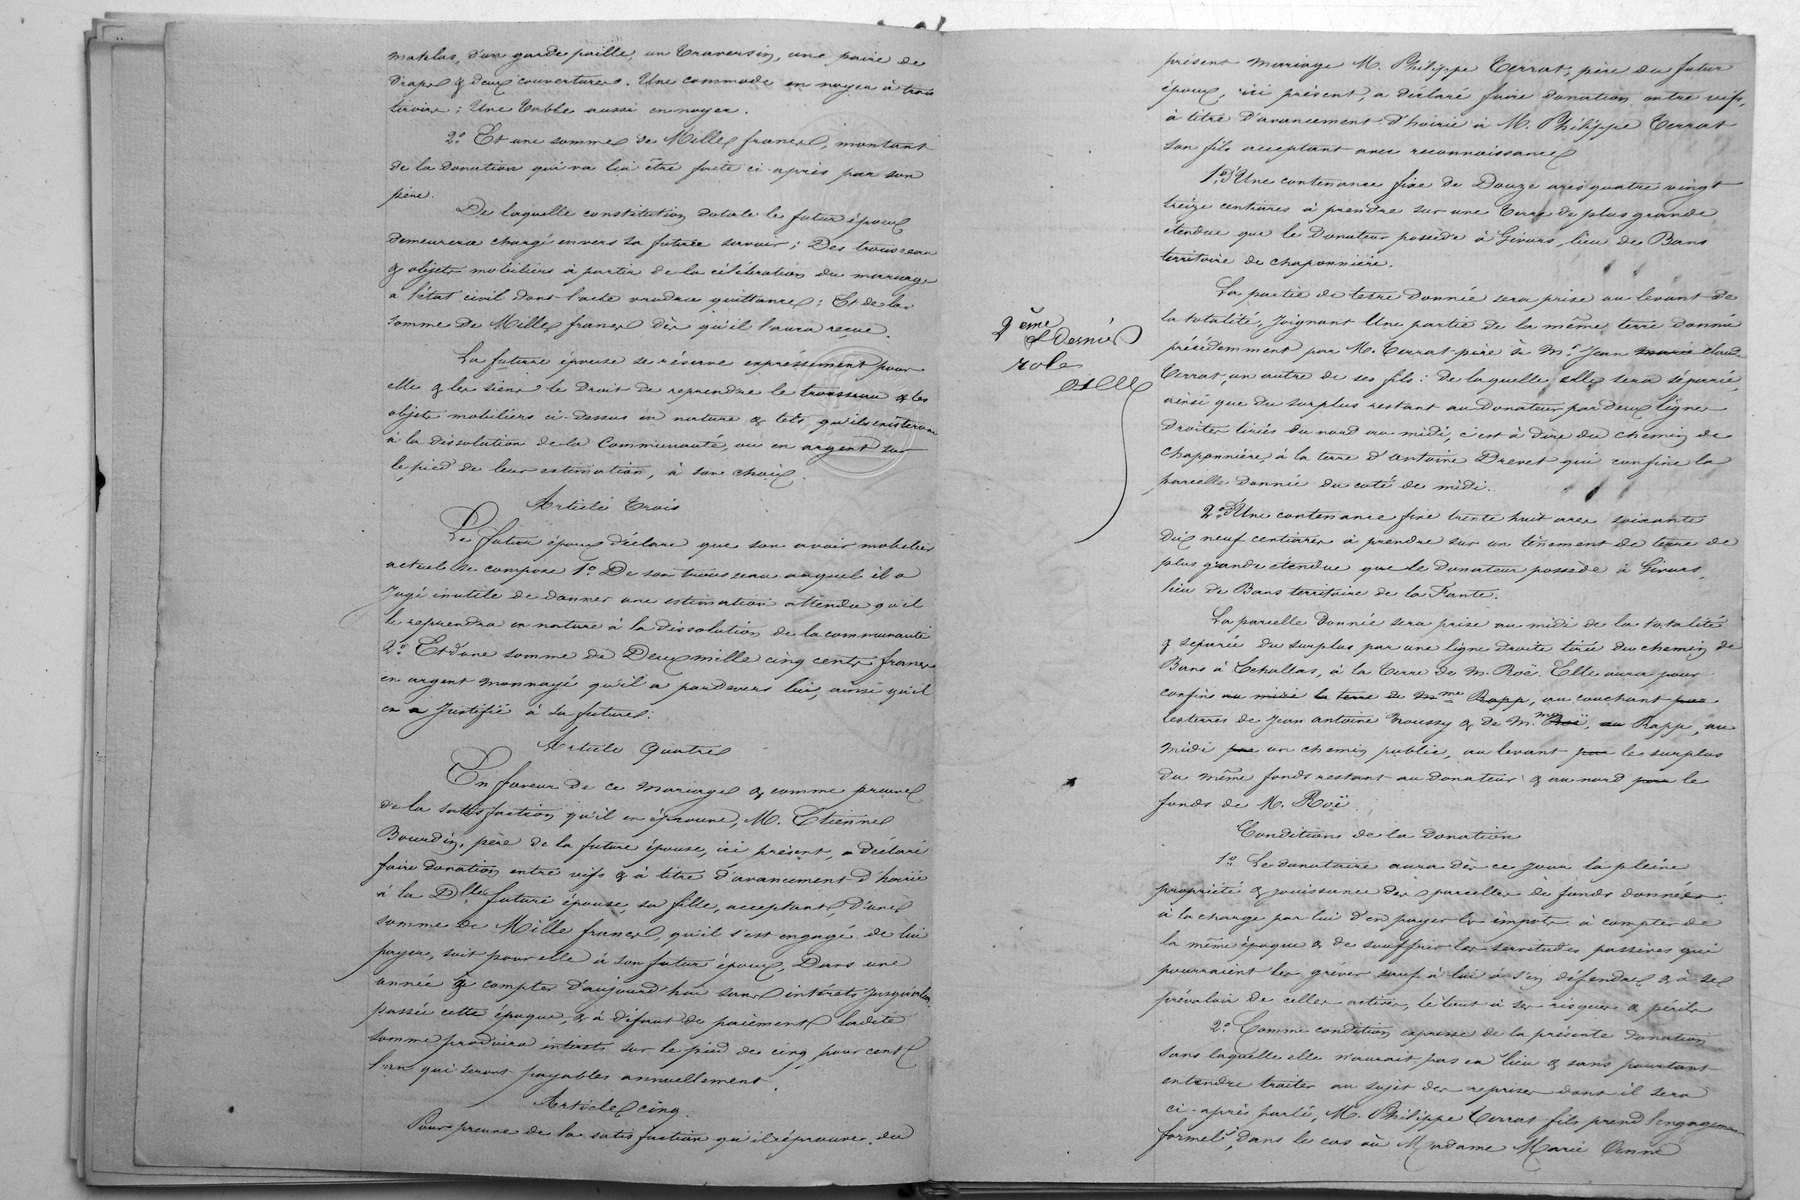 matelas, d'un garde paille, un traversin, une paire de
draps & deux couvertures. Une commode en noyer à trois
tiroirs; Une table aussi en noyer.
2º Et une somme de Mille francs, montant
de la donation qui va lui être faite ci-après par son
père.
De laquelle constitution dotale le futur époux
demeurera chargé envers sa future savoir: Des trousseau
& objets mobiliers à partir de la célébration du mariage
à l'état civil dont l'acte vaudra quittance; Et de la
somme de Mille francs dès qu'il l'aura reçue.
La future épouse se réserve expressément pour
elle & les siens le droit de reprendre le trousseau & les
objets mobiliers ci-dessus en nature & tels qu'ils existeront
à la dissolution de la Communauté, ou en argent sur
le pied de leur estimation, à son choix.
Article Trois
Le futur époux déclare que son avoir mobilier
actuel se compose 1º De son trousseau auquel il a
jugé inutile de donner une estimation attendu qu'il
le reprendra en nature à la dissolution de la communauté
2º Et d'une somme de Deux mille cinq cents francs
en argent monnayé qu'il a pardevers lui, ainsi qu'il
en a justifié à sa future.
Article Quatre
En faveur de ce mariage & comme preuve
de la satisfaction qu'il en éprouve, M. Etienne
Bourdin, père de la future épouse, ici présent, a déclaré
faire donation entre vifs & à titre d'avancement d'hoirie
à la Dlle future épouse, sa fille, acceptant, d'une
somme de Mille francs, qu'il s'est engagé de lui
payer, soit pour elle à son futur époux, Dans une
année à compter d'aujourd'hui sans intérêts jusqu'alors
passée cette époque, & à défaut de paiement ladite
somme produira intérêts sur le pied de cinq pour cent
l'an qui seront payables annuellement.
Article cinq
Pour preuve de la satisfaction qu'il éprouve du
2ème
& dernier
role
présent mariage M. Philippe Terrat, père du futur
époux, ici présent, a déclaré faire donation entre vifs,
à titre d'avancement d'hoirie à M. Philippe Terrat
son fils acceptant avec reconnaissance
1º D'Une contenance fixe de Douze ares quatre vingt
treize centiares à prendre sur une terre de plus grande
étendue que le Donateur possède à Givors, lieu de Bans
territoire de chaponnière.
La partie de terre donnée sera prise au levant de
la totalité, joignant Une partie de la même terre donnée
précédemment par M. Terrat père à Mr Jean marie claude
Terrat, un autre de ses fils: de laquelle elle sera séparée,
ainsi que du surplus restant au Donateur par deux lignes
droites tirées du nord au midi, c'est à dire du chemin de
chaponnière, à la terre d'antoine Drevet qui confine la
parcelle donnée du coté de midi.
2º D'Une contenance fixe trente huit ares soixante
dix neuf centiares à prendre sur un tènement de terre de
plus grande étendue que le Donateur possède à Givors,
lieu de Bans territoire de la Fante.
La parcelle donnée sera prise au midi de la totalité
& séparée du surplus par une ligne droite tirée du chemin de
Bans à Echallas, à la terre de M. Roë. Elle aura pour
confins au midi la terre de Mme Rapp, au couchant par
les terres de Jean Antoine Troussy & de M. Roë, me au Rapp, au
midi par un chemin public, au levant par le surplus
du même fonds restant au donateur & au nord par le
fonds de M. Roë.
Conditions de la donation
1º Le donataire aura dès ce jour la pleine
propriété & jouissance des parcelles de fonds données,
à la charge par lui d'en payer les impôts à compter de
la même époque & de souffrir les servitudes passives qui
pourraient les gréver sauf à lui à s'en défendre & à se
prévaloir de celles actives, le tout à ses risques & périls
2º Comme condition expresse de la présente donation
sans laquelle elle n'aurait pas eu lieu & sans pourtant
entendre traiter au sujet des reprises dont il sera
ci-après parlé, M. Philippe Terrat fils prend l'engagement
formel, dans le cas où Madame Marie Anne